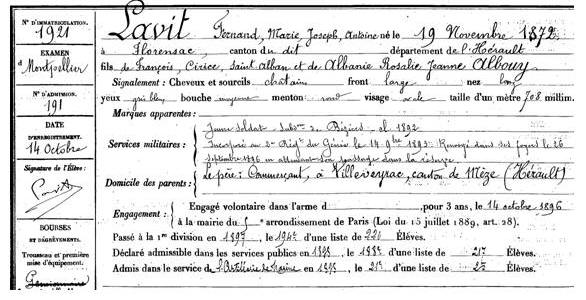 N° D'IMMATRICULATION.
1921
EXAMEN
d Montpellier
N° D'ADMISSION.
191
DATE
D'ENREGISTREMENT.
14 Octobre
Signature de l'Élève :
Lavit
BOURSES
ET DÉGRÈVEMENTS.
Trousseau et première
mise d'équipement.
Lavit Fernand, Marie, Joseph, Antoine né le 19 Novembre 1872
à Florensac, canton du dit département de l'Hérault
fils de François, Cirice, Saint Alban et de Albanie Rosalie Jeanne Albouy
Signalement : Cheveux et sourcils châtain front large nez long
yeux gris bleu bouche moyenne menton rond visage ovale taille d'un mètre 708 millim.
Marques apparentes :
Services militaires :
Jeune soldat Subon de Béziers, cl 1892
Incorporé au 2e Régt du Génie le 14 9bre 1893. Renvoyé dans ses foyers le 26
septembre 1896 en attendant son passage dans la réserve.
Domicile des parents :
Le père : Commerçant, à Villeveyrac, canton de Mèze (Hérault)
Engagement :
Engagé volontaire dans l'arme d , pour 3 ans, le 14 octobre 1896
à la mairie du 5e arrondissement de Paris (Loi du 15 juillet 1889, art. 28).
Passé à la 1re division en 1897, le 194e d'une liste de 220 Élèves.
Déclaré admissible dans les services publics en 1898, le d'une liste de 217 Élèves.
Admis dans le service de l'Artillerie de marine en 1898, le d'une liste de Élèves.